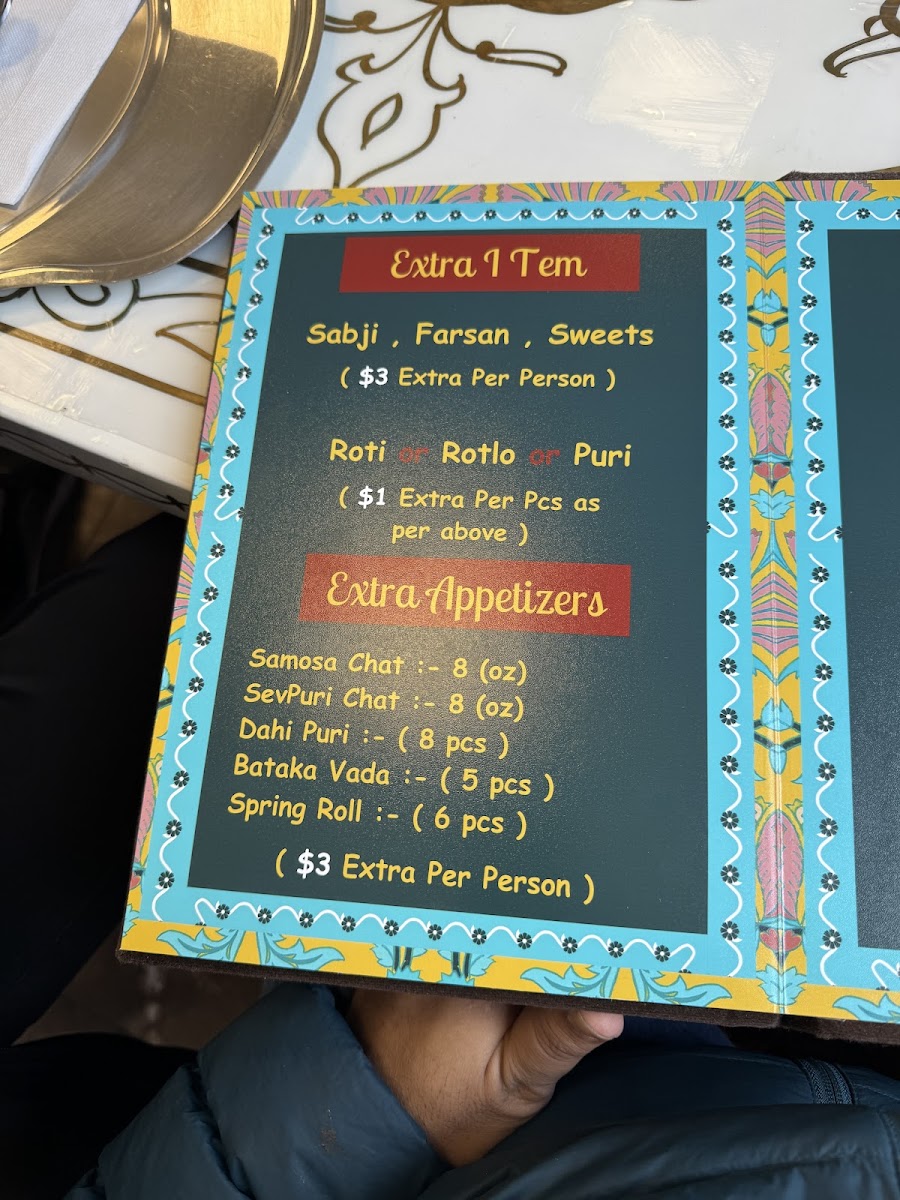 Extra I Tem
Sabji , Farsan , Sweets
( $3 Extra Per Person )
Roti or Rotlo or Puri
( $1 Extra Per Pcs as
per above )
Extra Appetizers
Samosa Chat :- 8 (oz)
SevPuri Chat :- 8 (oz)
Dahi Puri :- ( 8 pcs )
Bataka Vada :- ( 5 pcs )
Spring Roll :- ( 6 pcs )
( $3 Extra Per Person )